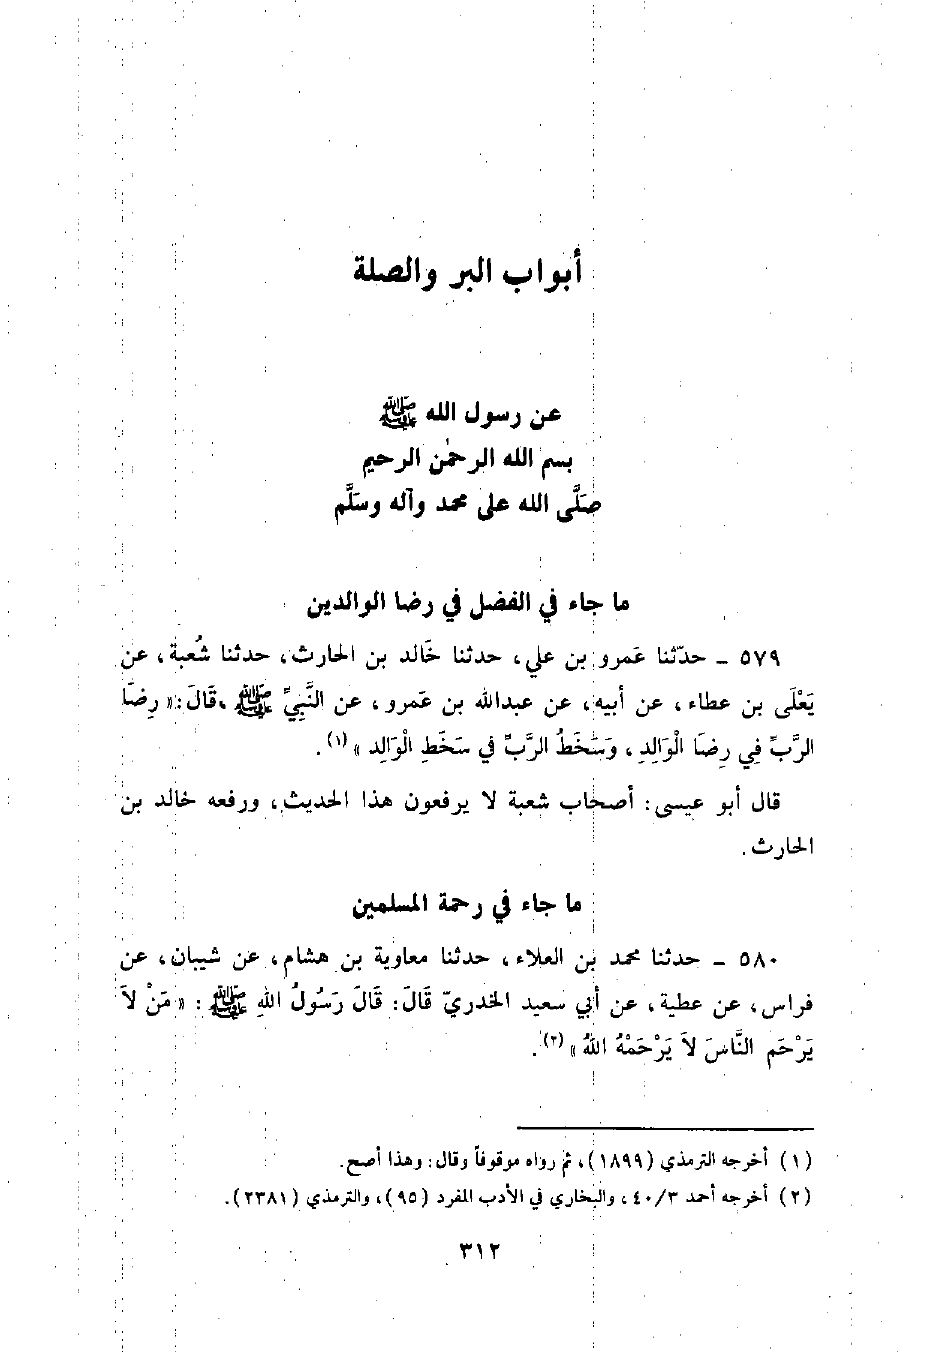 أبواب البر والصلة
عن رسول الله ﷺ
بسم الله الرحمٰن الرحيم
صَلَّى الله على محمد وآله وسَلَّم
ما جاء في الفضل في رضا الوالدين
٥٧٩ - حدّثنا عَمرو بن علي، حدثنا خَالد بن الحارث، حدثنا شُعبة، عن
يَعْلَى بن عطاء، عن أبيه، عن عبدالله بن عَمرو، عن النَّبِيِّ ﷺ، قَالَ: « رِضَا
الرَّبِّ فِي رِضَا الْوَالِدِ، وَسَخَطُ الرَّبِّ فِي سَخَطِ الْوَالِد »(١).
قال أبو عيسى: أصحاب شعبة لا يرفعون هذا الحديث، ورفعه خالد بن
الحارث.
ما جاء في رحمة المسلمين
٥٨٠ - حدثنا محمد بن العلاء، حدثنا معاوية بن هشام، عن شيبان، عن
فراس، عن عطية، عن أبي سعيد الخدريّ قَالَ: قَالَ رَسُولُ اللهِ ﷺ: « مَنْ لاَ
يَرْحَم النَّاسَ لاَ يَرْحَمْهُ اللهُ »(٢).
(١) أخرجه الترمذي (١٨٩٩)، ثم رواه موقوفاً وقال: وهذا أصح.
(٢) أخرجه أحمد ٤٠/٣، والبخاري في الأدب المفرد (٩٥)، والترمذي (٢٣٨١).
٣١٢